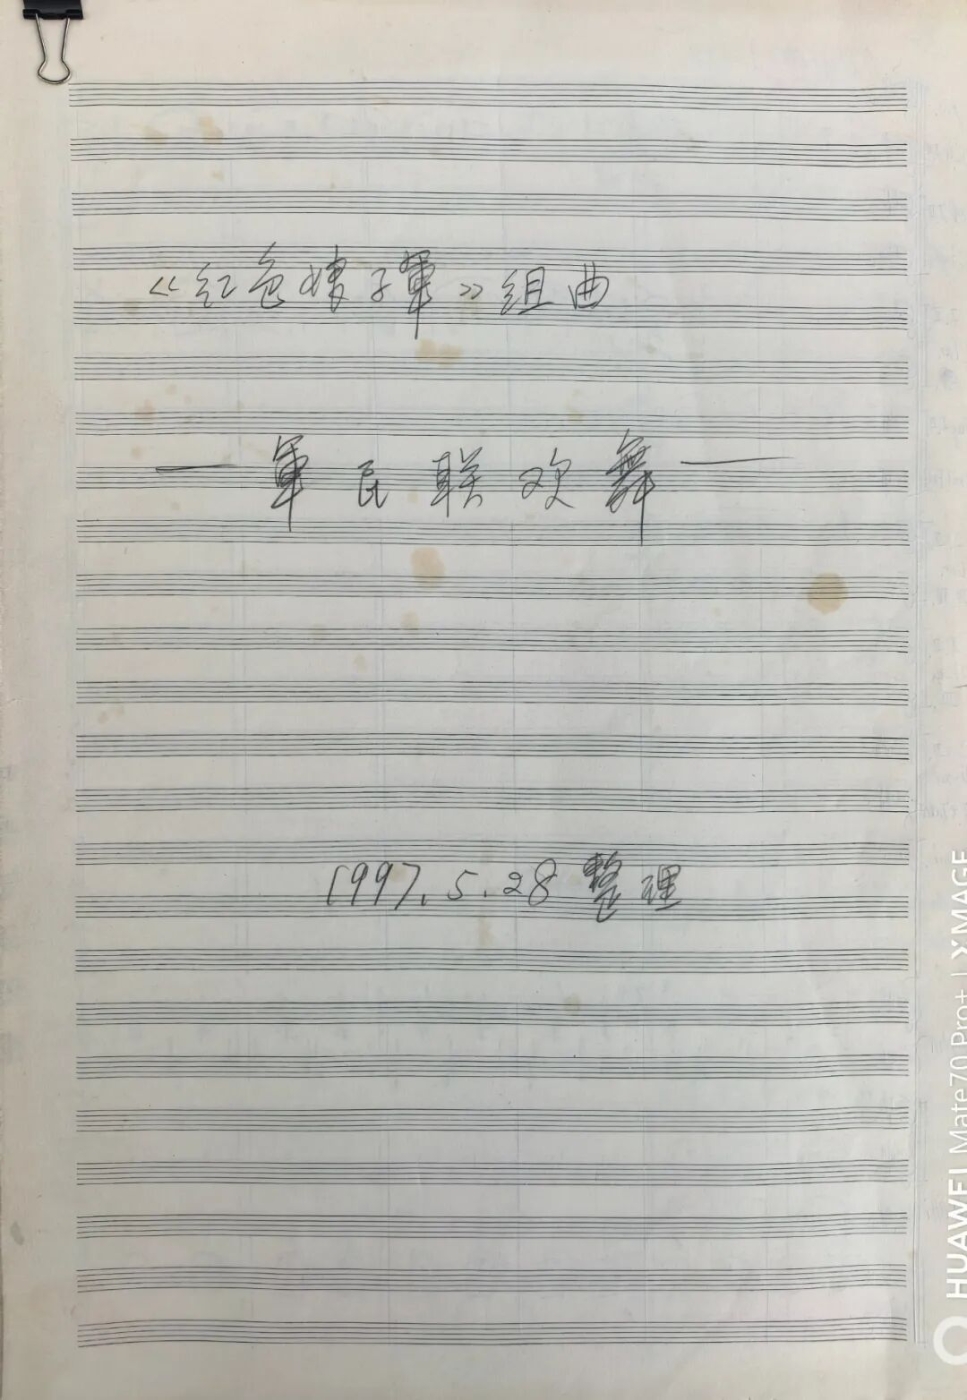 《红色娘子軍》组曲
—軍民联欢舞—
1997.5.28 整理
HUAWEI Mate70 Pro+ | XMAGE